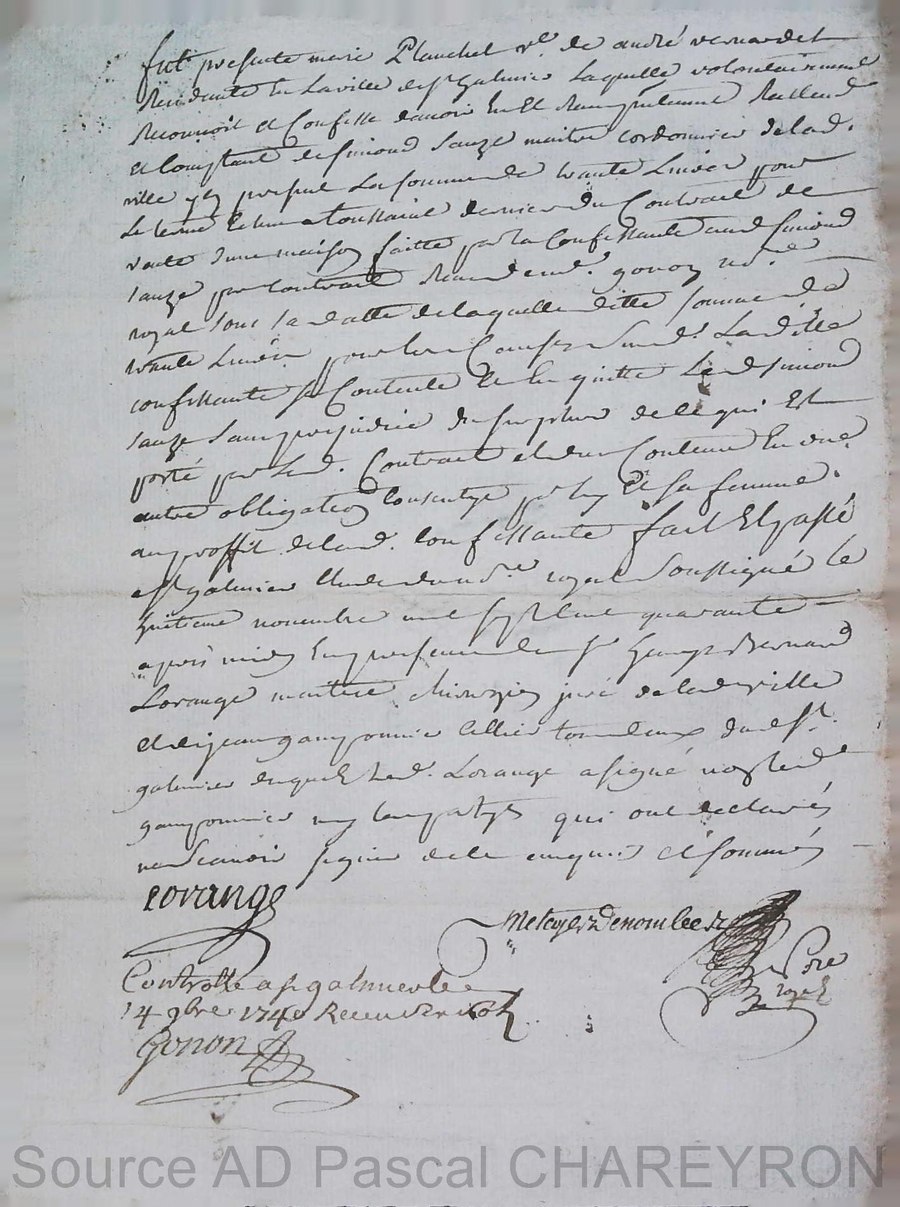 fut presente marie Planchet vve de andré vernardet
Residante En la ville de st Galmier Laquelle volontairement
Reconnoit Et Confesse d'avoir Eu Et Reellement
Et Comptant de simond sauze maitre cordonnier de lad.
ville present La somme de trante Livres pour
Le terme toussaint dernier du Contrait de
vante d'une maison faitte par la Confessante aud simond
sauze par Contrait Receu de md. gonon nore
royal sous sa datte de laquelle ditte somme de
trante Livres pour les Causes susd. Laditte
confessante se Contente Et En quitte Led simond
sauze sans prejudice du surplus de ce qui Est
porté par Led. Contrait Et du Contenu En une
autre obligation Consentye par luy Et sa femme
au proffit de lad. Confessante fait Et passé
a st galmier Etude du nore royal soussigné le
huitieme novembre mil sept Cent quarante
apres midy En presence de sr Bernard
Lorange maitre chirurgien juré de lad ville
Et de jean gamponnier cellier dud st
galmier duquel Led. Lorange a signé non led
gamponnier ny les partyes qui ont declarés
ne scavoir signer de ce enquis Et sommés
Lorange
Metayer Denomlee
Nore
royal
Controllé a st galmier le
14 9bre 1740 Receu
Gonon
Source AD Pascal CHAREYRON